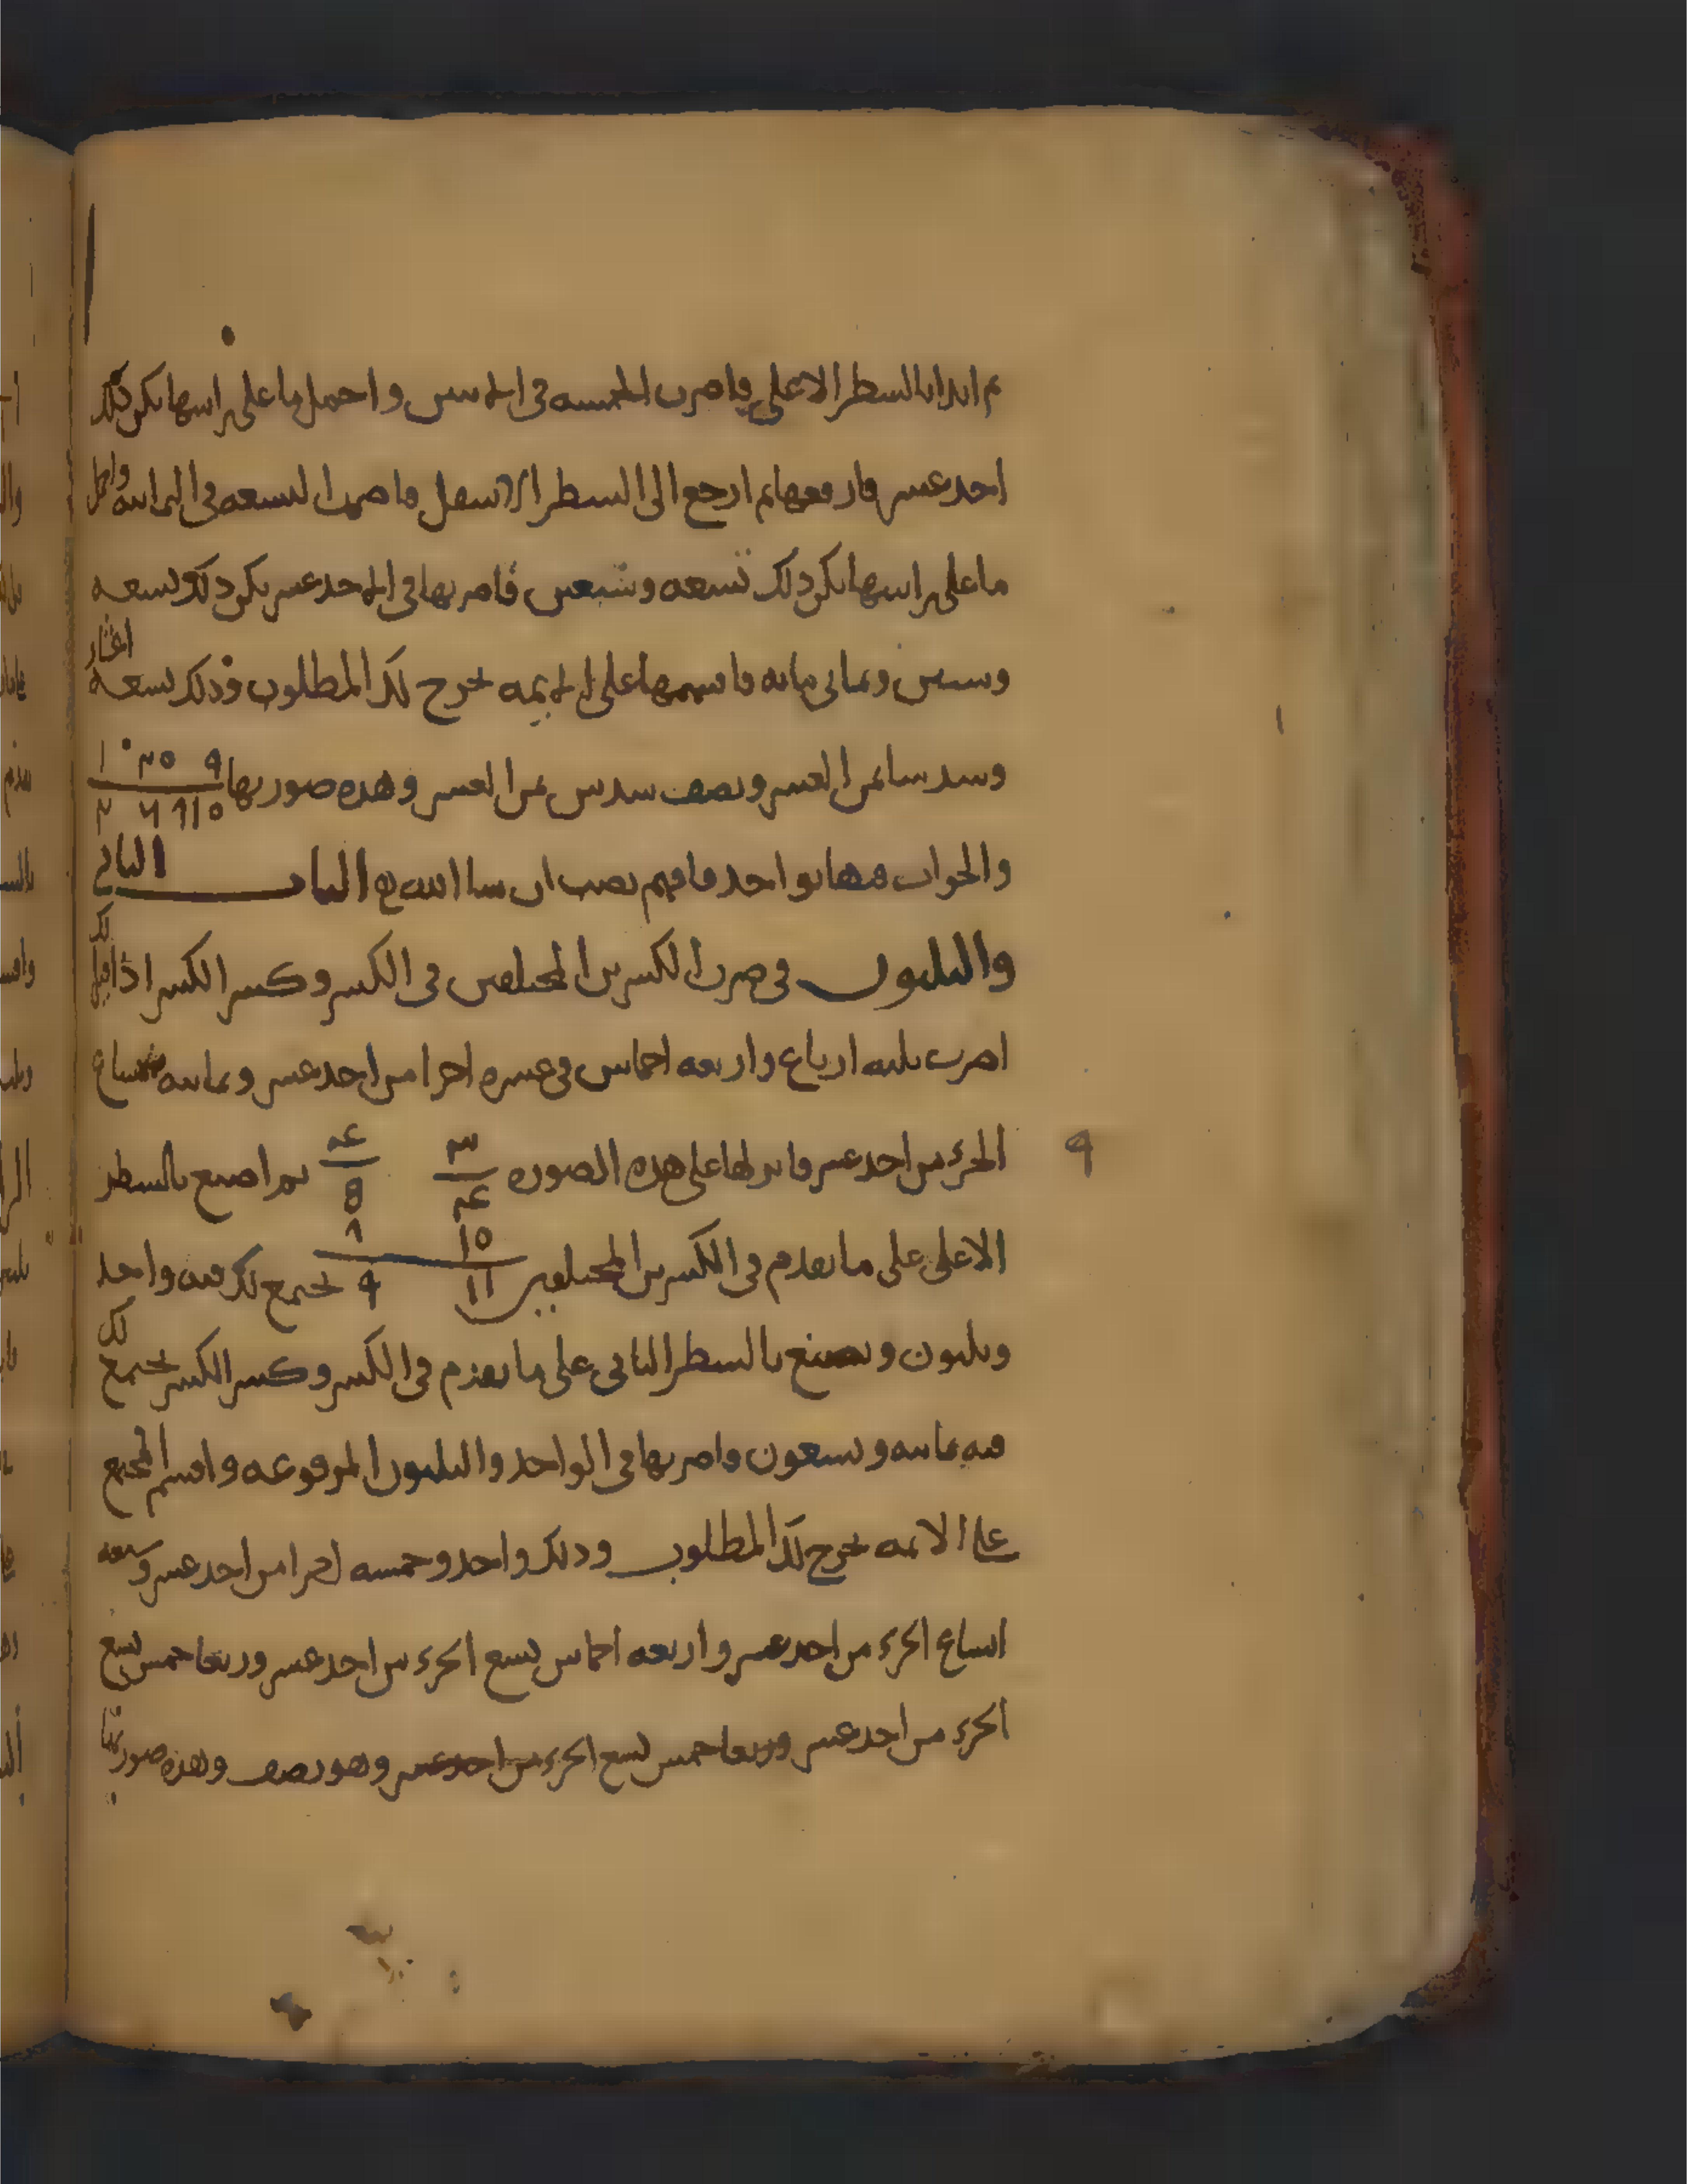 ثم ابدا بالسطر الاعلى فاضرب الخمسة في الاثنين واحمل ما على راسها يكن ذلك
احد عشر فارفعها ثم ارجع الى السطر الاسفل فاضرب التسعة في الثمانية واحمل
ما على راسها يكن ذلك تسعة وسبعين فاضربها في الاحد عشر يكن ذلك تسعة
وستين وثماني مائة فاقسمها على الائمة يخرج لك المطلوب وذلك تسعة اعشار
وسدسا ثمن العشر ونصف سدس ثمن العشر وهذه صورتها
والجواب فيها بواحد فافهم تصب ان شا الله تع الباب الثاني
والثلثون في ضرب الكسرين المختلفين في الكسر وكسر الكسر اذا قيل لك
اضرب ثلثة ارباع واربعة اخماس في عشرة اجزا من احد عشر وثمانية اتساع
الجزء من احد عشر فانزلها على هذه الصورة ٣ ٤ ٤ ٥ ثم اصنع بالسطر
الاعلى على ما تقدم في الكسرين المختلفين ١٥ ١١ ٨ ٩ يجتمع لك فيه واحد
وثلثون وتصنع بالسطر الثاني على ما تقدم في الكسر وكسر الكسر يجتمع لك
فيه ثمانية وتسعون واضربها في الواحد والثلثين المرفوعة واقسم المجتمع
على الائمة يخرج لك المطلوب وذلك واحد وخمسة اجزا من احد عشر وسبعة
اتساع الجزء من احد عشر واربعة اخماس تسع الجزء من احد عشر وربعا خمس تسع
الجزء من احد عشر وربعا خمس تسع الجزء من احد عشر وهو نصف وهذه صورتها